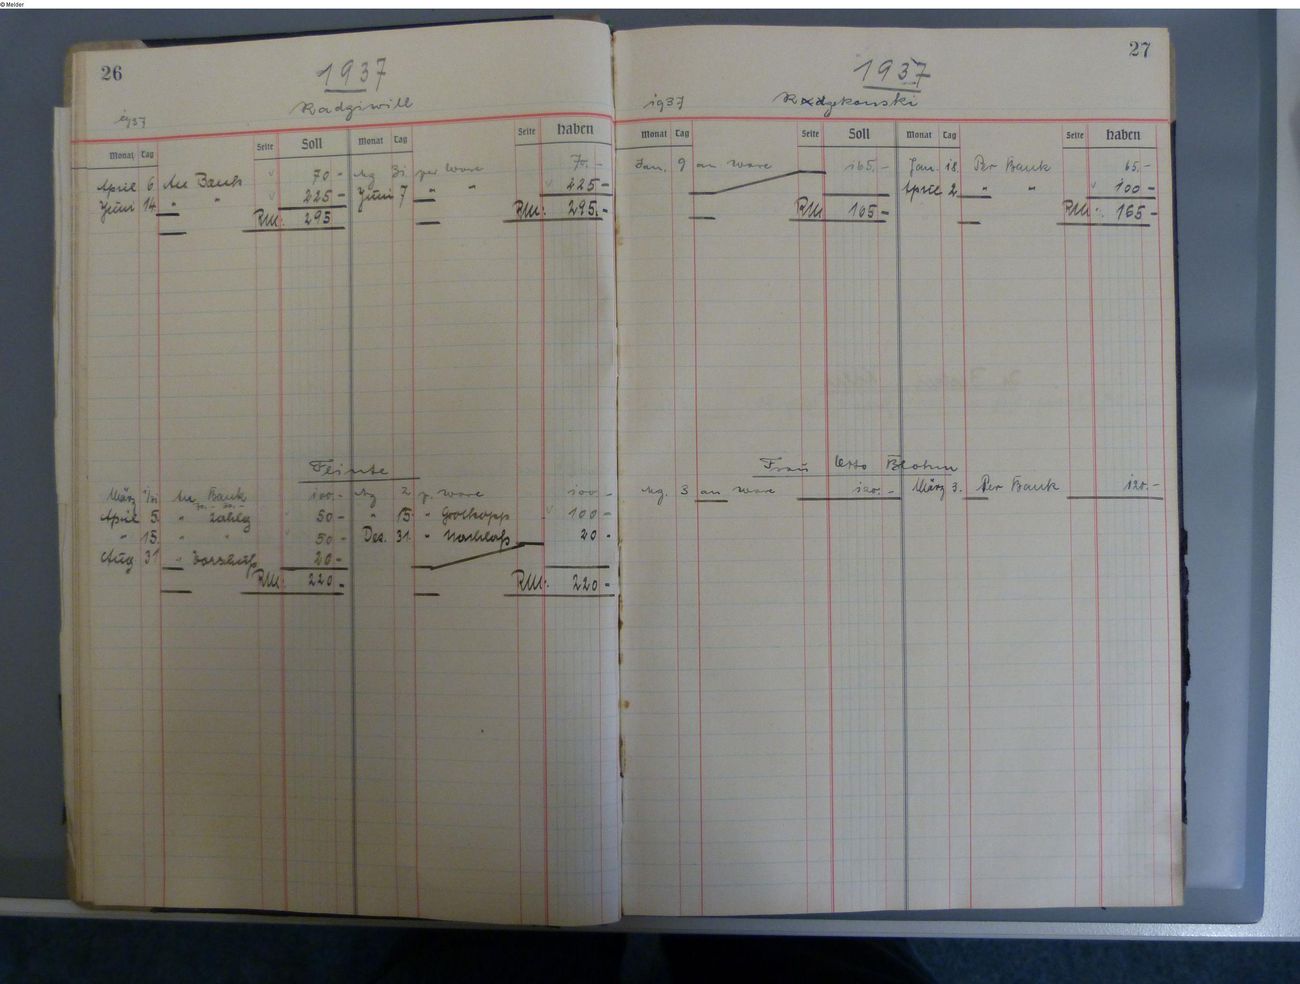 © Melder
26
1937
Radziwill
1937
Monat Tag Seite Soll Monat Tag Seite Haben
April 6 An Bank 70 - Mz 31 per Ware 70.-
Juni 14 " " 225 - Juni 7 " " 225 -
RM. 295. RM. 295.-
Flinte
März An Bank 100.- Mz 2 p. Ware 100.-
April 5. " Zahlg 50 - " 15. " 100 -
" 15. " " 50 - Dez. 31. " Nachlaß 20 -
Aug 31 " Vorschuß 20 -
RM. 220 - RM. 220 -
27
1937
1937
Monat Tag Seite Soll Monat Tag Seite Haben
Jan. 9 an Ware 165.- Jan. 18. Per Bank 65.-
April 2. " " 100 -
RM 165 - RM. 165 -
Frau Otto Blohm
Mz. 3 an Ware 120.- März 3. Per Bank 120.-